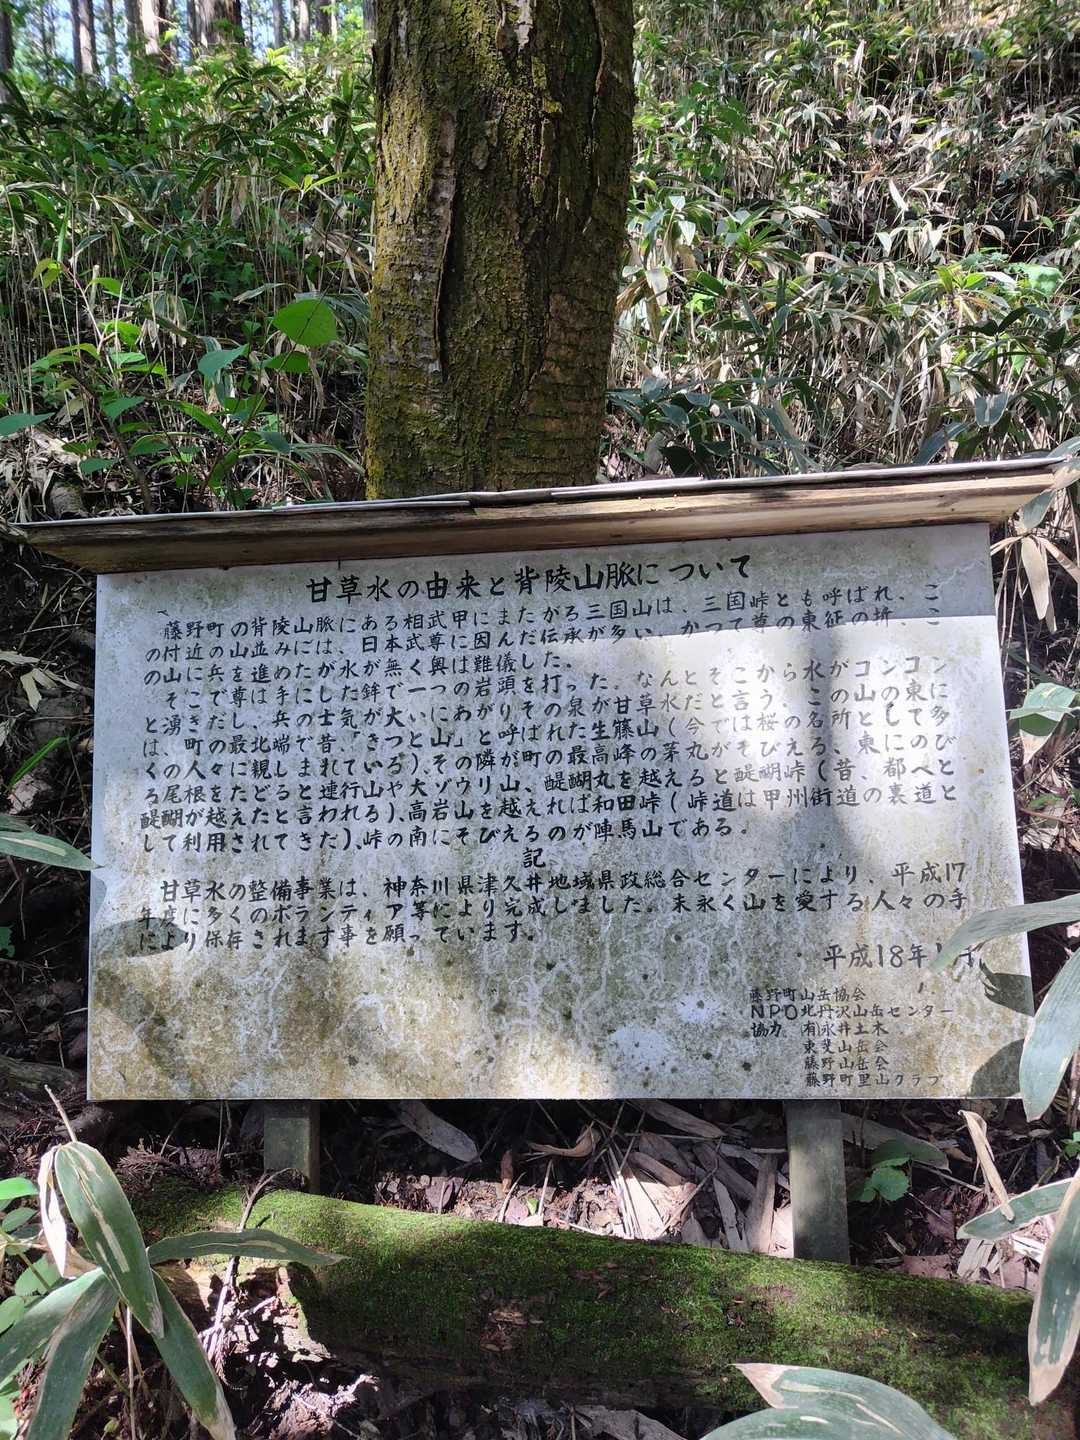 甘草水の由来と背陵山脈について
藤野町の背陵山脈にある相武甲にまたがる三国山は、三国峠とも呼ばれ、こ
の付近の山並みには、日本武尊に因んだ伝承が多い、かつて尊の東征の折、こ
の山に兵を進めたが水が無く輿は難儀した。
そこで尊は手にした鉾で一つの岩頭を打った、なんとそこから水がコンコン
と湧きだし、兵の士気が大いにあがりその泉が甘草水だと言う、この山の東に
は、町の最北端で昔、「きつと山」と呼ばれた生籐山(今では桜の名所として多
くの人々に親しまれている)、その隣が町の最高峰の茅丸がそびえる、東にのび
る尾根をたどると連行山や大ゾウリ山、醍醐丸を越えると醍醐峠(昔、都へと
醍醐が越えたと言われる)、高岩山を越えれば和田峠(峠道は甲州街道の裏道と
して利用されてきた)、峠の南にそびえるのが陣馬山である。
記
甘草水の整備事業は、神奈川県津久井地域県政総合センターにより、平成17
年度に多くのボランティア等により完成しました。末永く山を愛する人々の手
により保存されます事を願っています。
平成18年1月
藤野町山岳協会
NPO北丹沢山岳センター
協力 有永井土木
東斐山岳会
藤野山岳会
藤野町里山クラブ